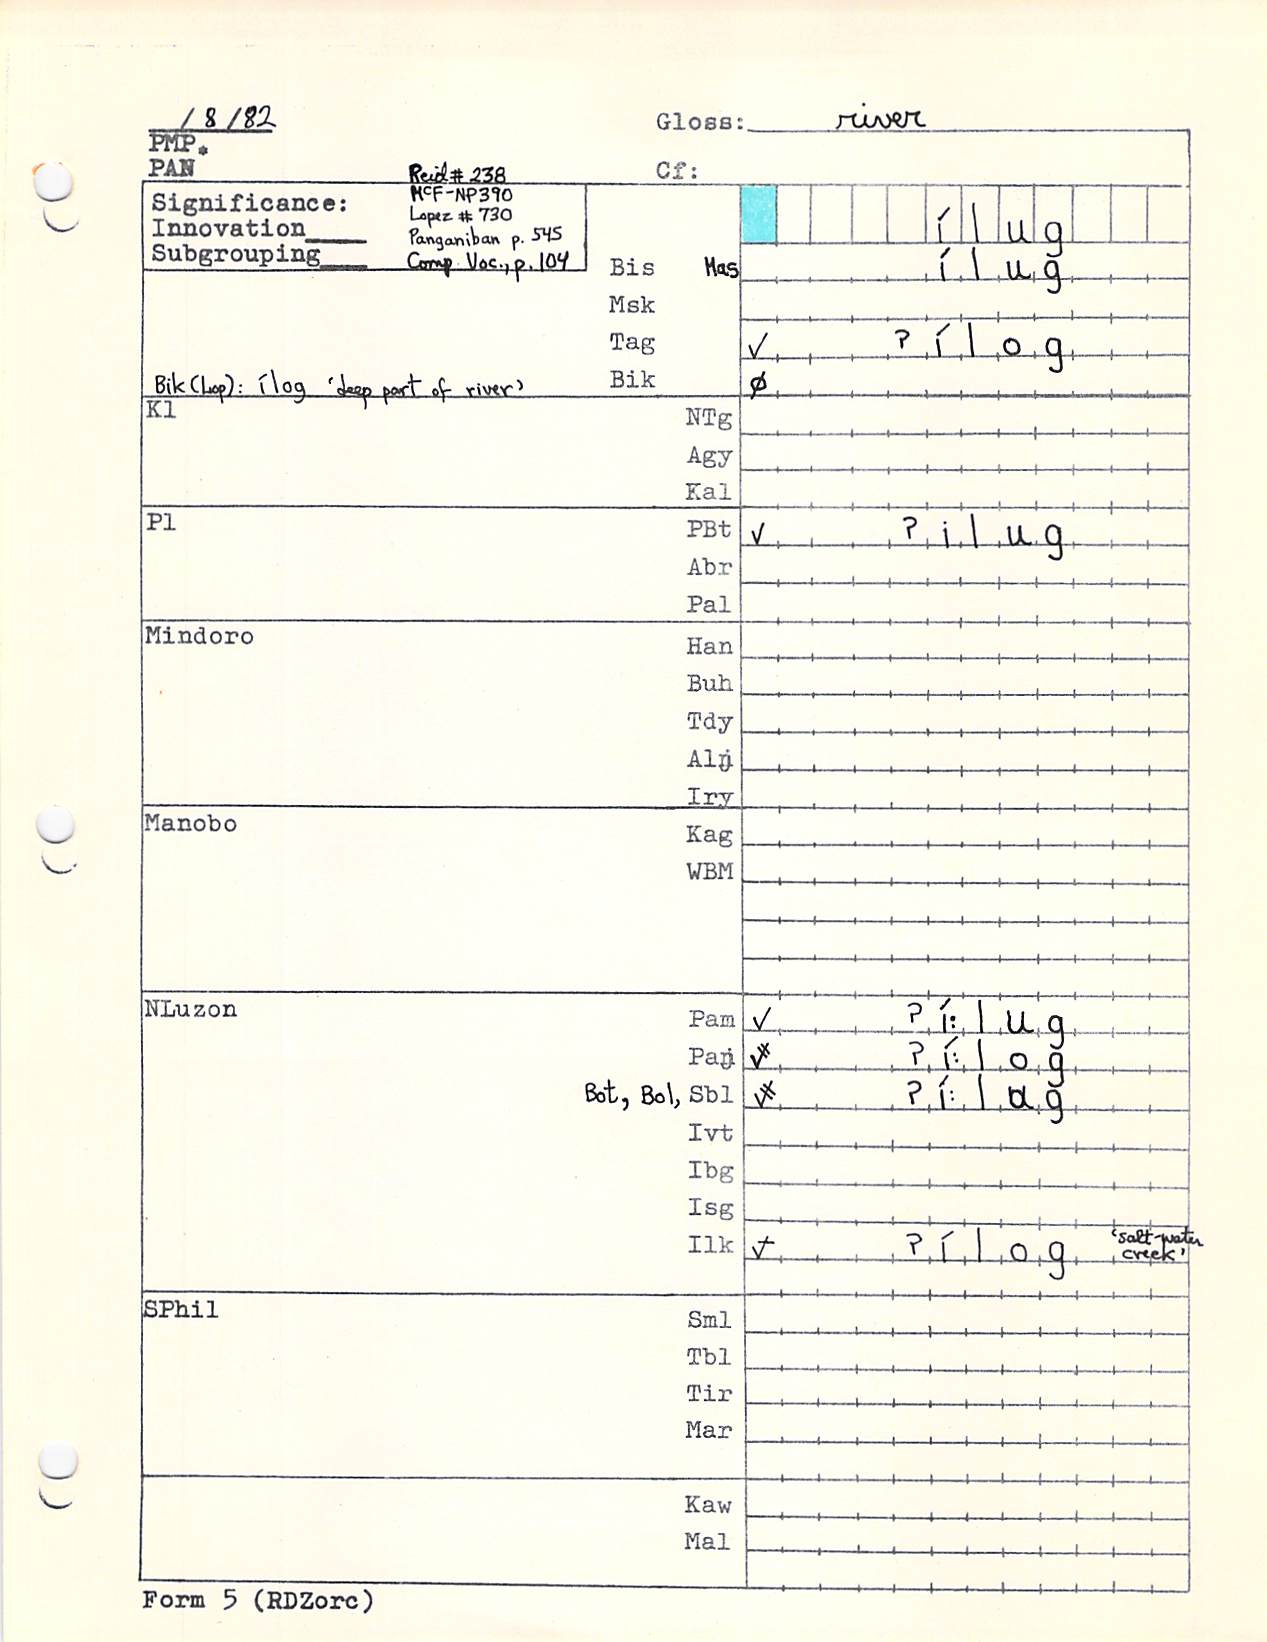 / 8 /82
Gloss: river
PMP.
PAN
Cf:
Reid # 238
McF-NP390
Lopez # 730
Panganiban p. 545
Comp. Voc., p. 104
Significance:
Innovation____
Subgrouping____
í l u g
Bis Mas í l u g
Msk
Tag ✓ ʔ í l o g
Bik (Lop): ílog 'deep part of river' Bik ∅
Kl
NTg
Agy
Kal
Pl
PBt ✓ ʔ i l u g
Abr
Pal
Mindoro
Han
Buh
Tdy
Alŋ
Iry
Manobo
Kag
WBM
NLuzon
Pam ✓ ʔ í: l u g
Paŋ ✓# ʔ í: l o g
Bot, Bol, Sbl ✓# ʔ í: l a g
Ivt
Ibg
Isg
Ilk ✓ ʔ í l o g 'salt-water creek'
SPhil
Sml
Tbl
Tir
Mar
Kaw
Mal
Form 5 (RDZorc)